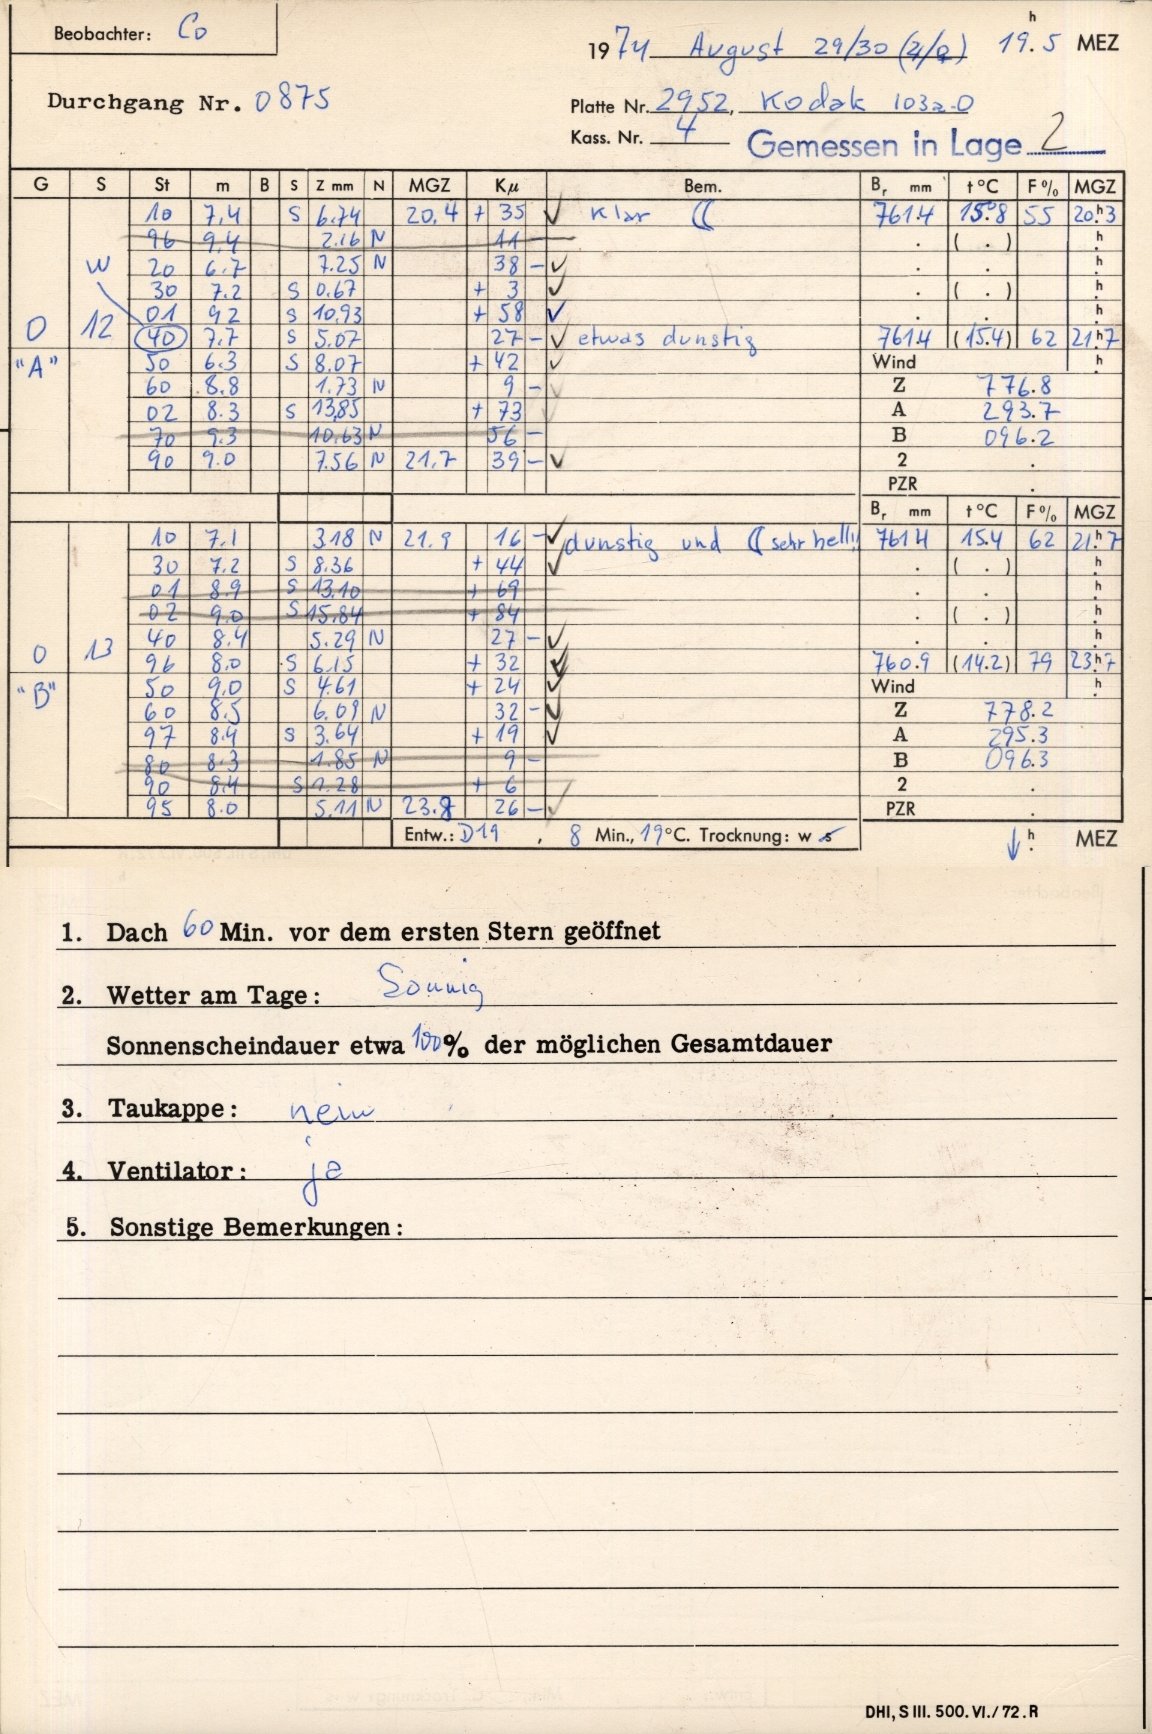 Beobachter: Co
1974 August 29/30 19.h5 MEZ
Durchgang Nr. 0875
Platte Nr. 2952, Kodak 103a-O
Kass. Nr. 4 Gemessen in Lage 2
G S St m B S Z mm N MGZ Kμ Bem. Br mm t°C F% MGZ
10 7.4 S 6.74 20.4 + 35 ✓ klar ☾ 761.4 15.8 55 20.h3
96 9.4 2.16 N 11 ( . ) h
W 20 6.7 7.25 N 38 - ✓ h
30 7.2 S 0.67 + 3 ✓ ( . ) h
01 9.2 S 10.93 + 58 ✓ h
0 12 40 7.7 S 5.07 27 - ✓ etwas dunstig 761.4 (15.4) 62 21.h7
"A" 50 6.3 S 8.07 + 42 ✓ Wind h
60 8.8 1.73 N 9 - Z 776.8
02 8.3 S 13.85 + 73 A 293.7
70 9.3 10.63 N 56 - B 096.2
90 9.0 7.56 N 21.7 39 - ✓ 2 .
PZR .
Br mm t°C F% MGZ
10 7.1 3.18 N 21.9 16 - ✓ dunstig und ☾ sehr hell!! 761.4 15.4 62 21.h7
30 7.2 S 8.36 + 44 ✓ ( . ) h
01 8.9 S 13.10 + 69 h
02 9.0 S 15.84 + 84 ( . ) h
40 8.4 5.29 N 27 - ✓ h
0 13 96 8.0 S 6.15 + 32 ✓ 760.9 (14.2) 79 23.h7
"B" 50 9.0 S 4.61 + 24 ✓ Wind h
60 8.5 6.09 N 32 - ✓ Z 778.2
97 8.4 S 3.64 + 19 ✓ A 295.3
80 8.3 1.85 N 9 - B 096.3
90 8.4 S 1.28 + 6 2 .
95 8.0 5.11 N 23.8 26 - ✓ PZR .
Entw.: D19 , 8 Min., 19°C. Trocknung: w s ↓ h MEZ
1. Dach 60 Min. vor dem ersten Stern geöffnet
2. Wetter am Tage: Sonnig
Sonnenscheindauer etwa 100% der möglichen Gesamtdauer
3. Taukappe: nein
4. Ventilator: ja
5. Sonstige Bemerkungen:
DHI, S III. 500. VI./72. R